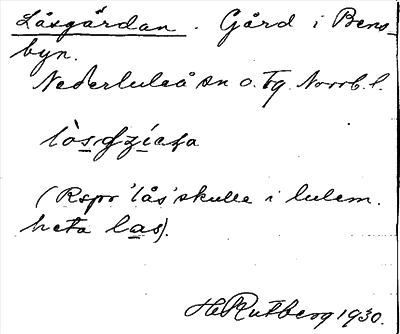 Låsgårdan. Gård i Bens-
byn.
Nederluleå sn o. tg. Norrb. l.
(Rspr 'lås' skulle i lulem.
heta las).
H Rutberg 1930.